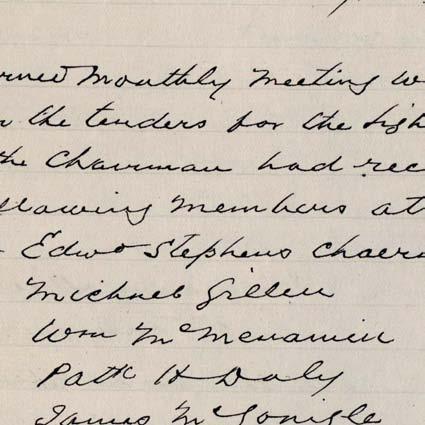 rned Monthly Meeting w
the tenders for the Ligh
the Chairman had rec
llowing members at
Edwd Stephens Chair
Michael Gillen
Wm McMenamin
Patk H Daly
James McGonigle